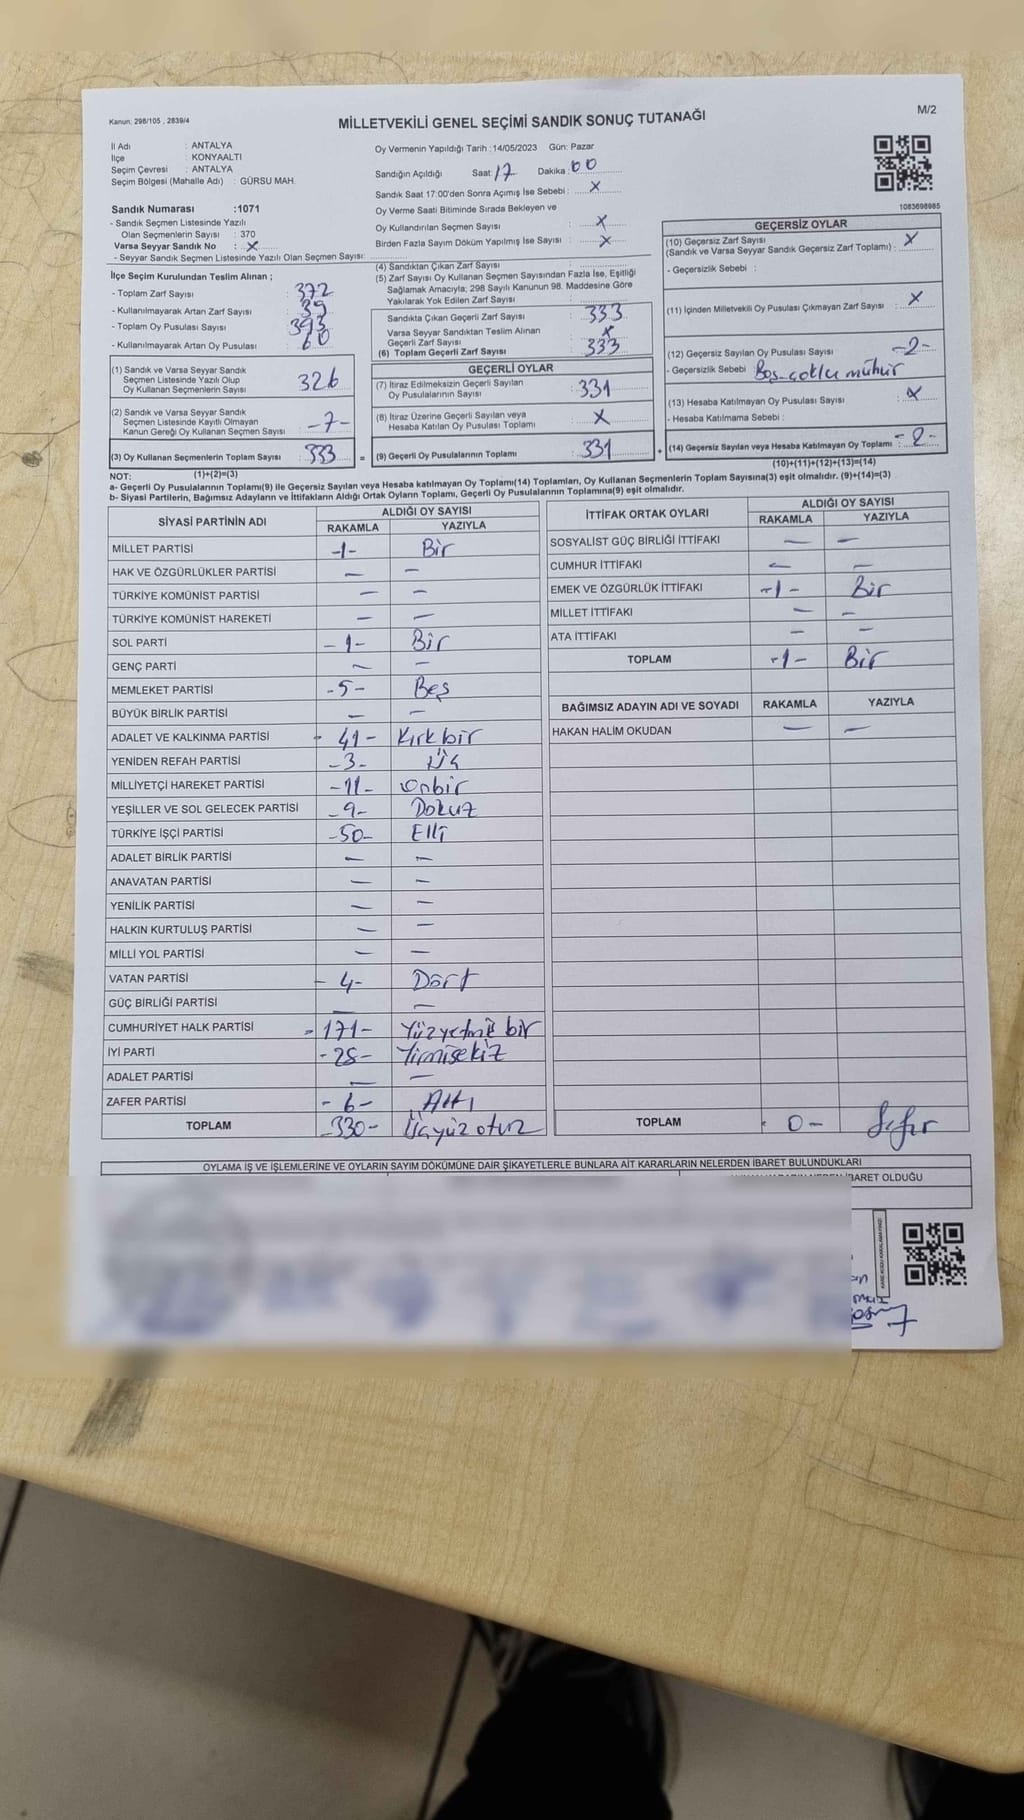 Kanun: 298/105 , 2839/4
MİLLETVEKİLİ GENEL SEÇİMİ SANDIK SONUÇ TUTANAĞI
M/2
İl Adı : ANTALYA
İlçe : KONYAALTI
Seçim Çevresi : ANTALYA
Seçim Bölgesi (Mahalle Adı) : GÜRSU MAH.
Oy Vermenin Yapıldığı Tarih :14/05/2023 Gün: Pazar
Sandığın Açıldığı Saat: 17 Dakika: 00
Sandık Saat 17:00'den Sonra Açımış İse Sebebi : X
Oy Verme Saati Bitiminde Sırada Bekleyen ve
Oy Kullandırılan Seçmen Sayısı : X
Birden Fazla Sayım Döküm Yapılmış İse Sayısı : X
1083698985
Sandık Numarası :1071
- Sandık Seçmen Listesinde Yazılı
Olan Seçmenlerin Sayısı : 370
Varsa Seyyar Sandık No : X
- Seyyar Sandık Seçmen Listesinde Yazılı Olan Seçmen Sayısı:
İlçe Seçim Kurulundan Teslim Alınan ;
- Toplam Zarf Sayısı : 372
- Kullanılmayarak Artan Zarf Sayısı : 39
- Toplam Oy Pusulası Sayısı : 393
- Kullanılmayarak Artan Oy Pusulası : 60
(1) Sandık ve Varsa Seyyar Sandık
Seçmen Listesinde Yazılı Olup
Oy Kullanan Seçmenlerin Sayısı : 326
(2) Sandık ve Varsa Seyyar Sandık
Seçmen Listesinde Kayıtlı Olmayan
Kanun Gereği Oy Kullanan Seçmen Sayısı : -7-
(3) Oy Kullanan Seçmenlerin Toplam Sayısı : 333
(1)+(2)=(3)
(4) Sandıktan Çıkan Zarf Sayısı :
(5) Zarf Sayısı Oy Kullanan Seçmen Sayısından Fazla İse, Eşitliği
Sağlamak Amacıyla; 298 Sayılı Kanunun 98. Maddesine Göre
Yakılarak Yok Edilen Zarf Sayısı :
Sandıkta Çıkan Geçerli Zarf Sayısı : 333
Varsa Seyyar Sandıktan Teslim Alınan
Geçerli Zarf Sayısı : X
(6) Toplam Geçerli Zarf Sayısı : 333
GEÇERLİ OYLAR
(7) İtiraz Edilmeksizin Geçerli Sayılan
Oy Pusulalarının Sayısı : 331
(8) İtiraz Üzerine Geçerli Sayılan veya
Hesaba Katılan Oy Pusulası Toplamı : X
= (9) Geçerli Oy Pusulalarının Toplamı : 331
GEÇERSİZ OYLAR
(10) Geçersiz Zarf Sayısı
(Sandık ve Varsa Seyyar Sandık Geçersiz Zarf Toplamı) : X
- Geçersizlik Sebebi :
(11) İçinden Milletvekili Oy Pusulası Çıkmayan Zarf Sayısı : X
(12) Geçersiz Sayılan Oy Pusulası Sayısı : -2-
- Geçersizlik Sebebi : Boş-çoklu mühür
(13) Hesaba Katılmayan Oy Pusulası Sayısı : X
- Hesaba Katılmama Sebebi :
+ (14) Geçersiz Sayılan veya Hesaba Katılmayan Oy Toplamı : -2-
(10)+(11)+(12)+(13)=(14)
NOT:
a- Geçerli Oy Pusulalarının Toplamı(9) ile Geçersiz Sayılan veya Hesaba katılmayan Oy Toplamı(14) Toplamları, Oy Kullanan Seçmenlerin Toplam Sayısına(3) eşit olmalıdır. (9)+(14)=(3)
b- Siyasi Partilerin, Bağımsız Adayların ve İttifakların Aldığı Ortak Oyların Toplamı, Geçerli Oy Pusulalarının Toplamına(9) eşit olmalıdır.
SİYASİ PARTİNİN ADI ALDIĞI OY SAYISI
RAKAMLA YAZIYLA
MİLLET PARTİSİ -1- Bir
HAK VE ÖZGÜRLÜKLER PARTİSİ — —
TÜRKİYE KOMÜNİST PARTİSİ — —
TÜRKİYE KOMÜNİST HAREKETİ — —
SOL PARTİ -1- Bir
GENÇ PARTİ — —
MEMLEKET PARTİSİ -5- Beş
BÜYÜK BİRLİK PARTİSİ — —
ADALET VE KALKINMA PARTİSİ - 41- Kırkbir
YENİDEN REFAH PARTİSİ -3- Üç
MİLLİYETÇİ HAREKET PARTİSİ -11- Onbir
YEŞİLLER VE SOL GELECEK PARTİSİ -9- Dokuz
TÜRKİYE İŞÇİ PARTİSİ -50- Elli
ADALET BİRLİK PARTİSİ — —
ANAVATAN PARTİSİ — —
YENİLİK PARTİSİ — —
HALKIN KURTULUŞ PARTİSİ — —
MİLLİ YOL PARTİSİ — —
VATAN PARTİSİ - 4- Dört
GÜÇ BİRLİĞİ PARTİSİ — —
CUMHURİYET HALK PARTİSİ -171- Yüzyetmiş bir
İYİ PARTİ -28- Yirmisekiz
ADALET PARTİSİ — —
ZAFER PARTİSİ -6- Altı
TOPLAM -330- Üçyüz otuz
İTTİFAK ORTAK OYLARI ALDIĞI OY SAYISI
RAKAMLA YAZIYLA
SOSYALİST GÜÇ BİRLİĞİ İTTİFAKI — —
CUMHUR İTTİFAKI — —
EMEK VE ÖZGÜRLÜK İTTİFAKI -1- Bir
MİLLET İTTİFAKI — —
ATA İTTİFAKI — —
TOPLAM -1- Bir
BAĞIMSIZ ADAYIN ADI VE SOYADI RAKAMLA YAZIYLA
HAKAN HALİM OKUDAN — —
TOPLAM - 0 - Sıfır
OYLAMA İŞ VE İŞLEMLERİNE VE OYLARIN SAYIM DÖKÜMÜNE DAİR ŞİKAYETLERLE BUNLARA AİT KARARLARIN NELERDEN İBARET BULUNDUKLARI
İBARET OLDUĞU